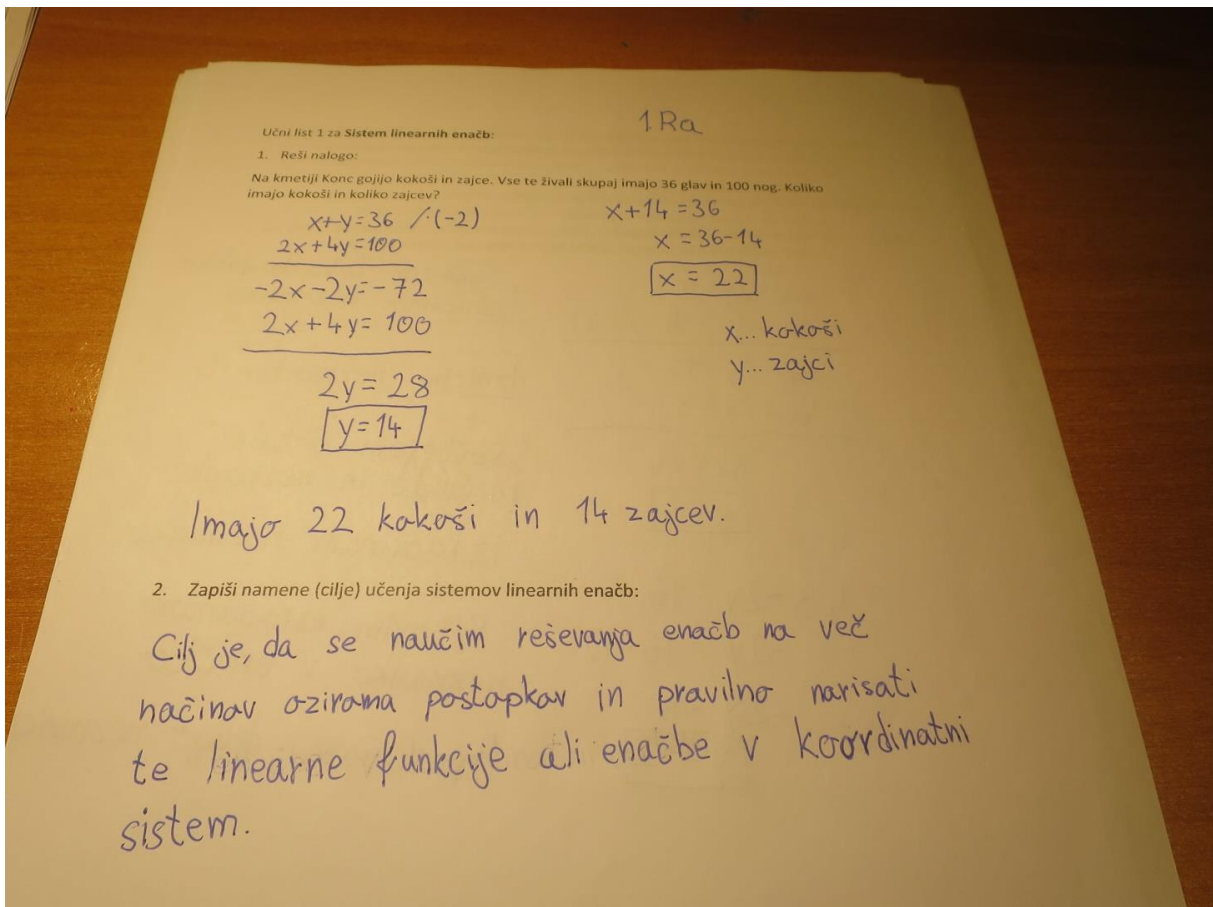 1.Ra
Učni list 1 za Sistem linearnih enačb:
1. Reši nalogo:
Na kmetiji Konc gojijo kokoši in zajce. Vse te živali skupaj imajo 36 glav in 100 nog. Koliko
imajo kokoši in koliko zajcev?
x+y=36 /·(-2)
2x+4y=100
-2x-2y=-72
2x+4y=100
2y=28
y=14
x+14=36
x=36-14
x=22
x... kokoši
y... zajci
Imajo 22 kokoši in 14 zajcev.
2. Zapiši namene (cilje) učenja sistemov linearnih enačb:
Cilj je, da se naučim reševanja enačb na več
načinov oziroma postopkov in pravilno narisati
te linearne funkcije ali enačbe v koordinatni
sistem.